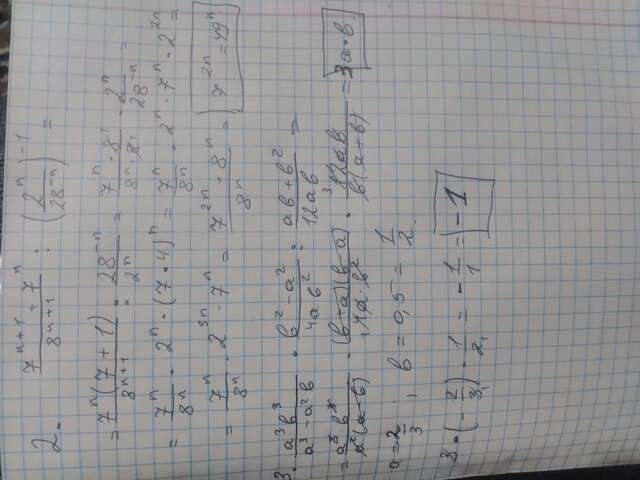 2. (7^{n+1} + 7^n)/8^{n+1} : (2^n/28^{-n})^{-1} =
= 7^n(7+1)/8^{n+1} : 28^{-n}/2^n = 7^n · 8^1/8^n · 8^1 · 2^n/28^{-n} =
= 7^n/8^n · 2^n · (7·4)^n = 7^n/8^n · 2^n · 7^n · 2^{2n} =
= 7^n/8^n · 2^{3n} · 7^n = 7^{2n} · 8^n/8^n = 7^{2n} = 49^n
3. a^3b^3/a^3 - a^2b · b^2 - a^2/4ab^2 : ab + b^2/12ab =
= a^3b^3/a^2(a-b) · (b+a)(b-a)/4a·b^2 · 12ab/b(a+b) = 3a·b
a = 2/3, b = 0,5 = 1/2
3 · (-2/3) · 1/2 = -1/1 = -1